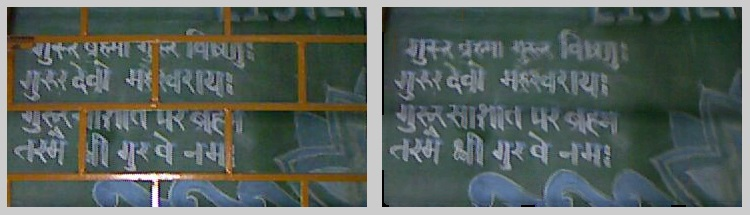 गुरूर ब्रह्मा गुरूर विष्णुः
गुरूर देवो महेश्वरायः
गुरूर साक्षात पर ब्रह्म
तस्मै श्री गुरवे नमः
गुरूर ब्रह्मा गुरूर विष्णुः
गुरूर देवो महेश्वरायः
गुरूर साक्षात पर ब्रह्म
तस्मै श्री गुरवे नमः